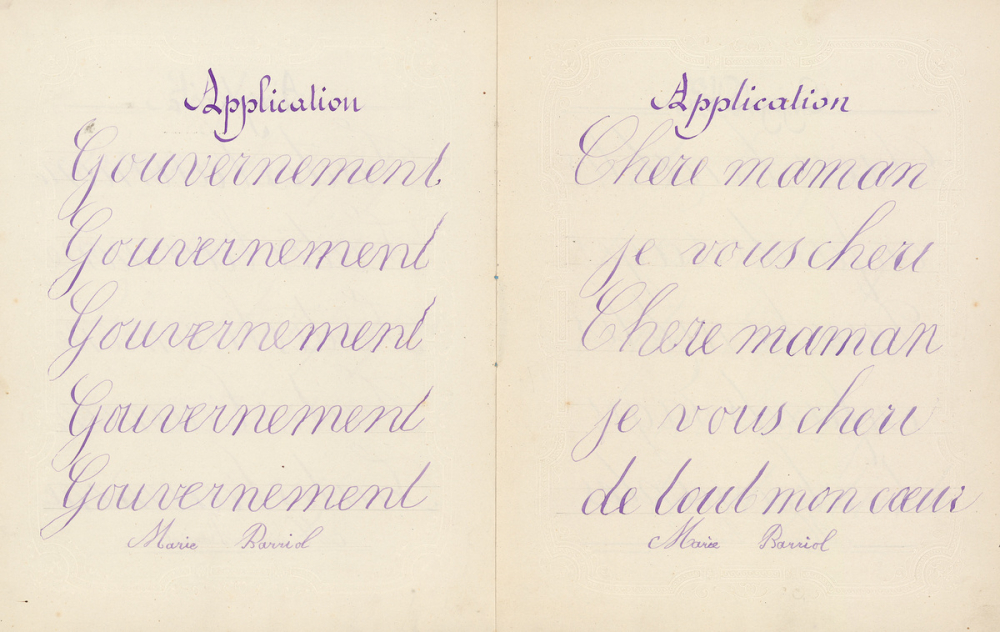 Application
Gouvernement
Gouvernement
Gouvernement
Gouvernement
Gouvernement
Marie Barriol
Application
Chere maman
je vous cheri
Chere maman
je vous cheri
de tout mon cœur
Marie Barriol